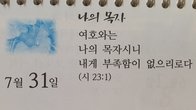 나의 목자
여호와는
나의 목자시니
내게 부족함이 없으리로다
(시 23:1)
7월 31일